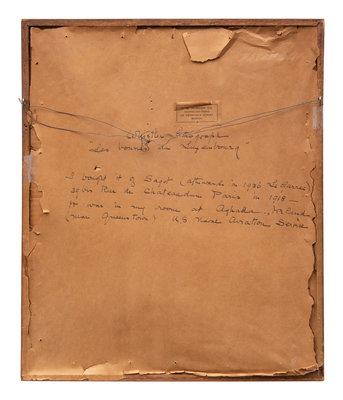 Whistler lithograph
"Les bonnes du Luxembourg"
I bought it of Sagot (afterwards in 1936 Le Garrec)
39 bis Rue de Chateaudun Paris in 1918 —
It was in my room at Aghada, Ireland
(near Queenstown) U.S. Naval Aviation Service